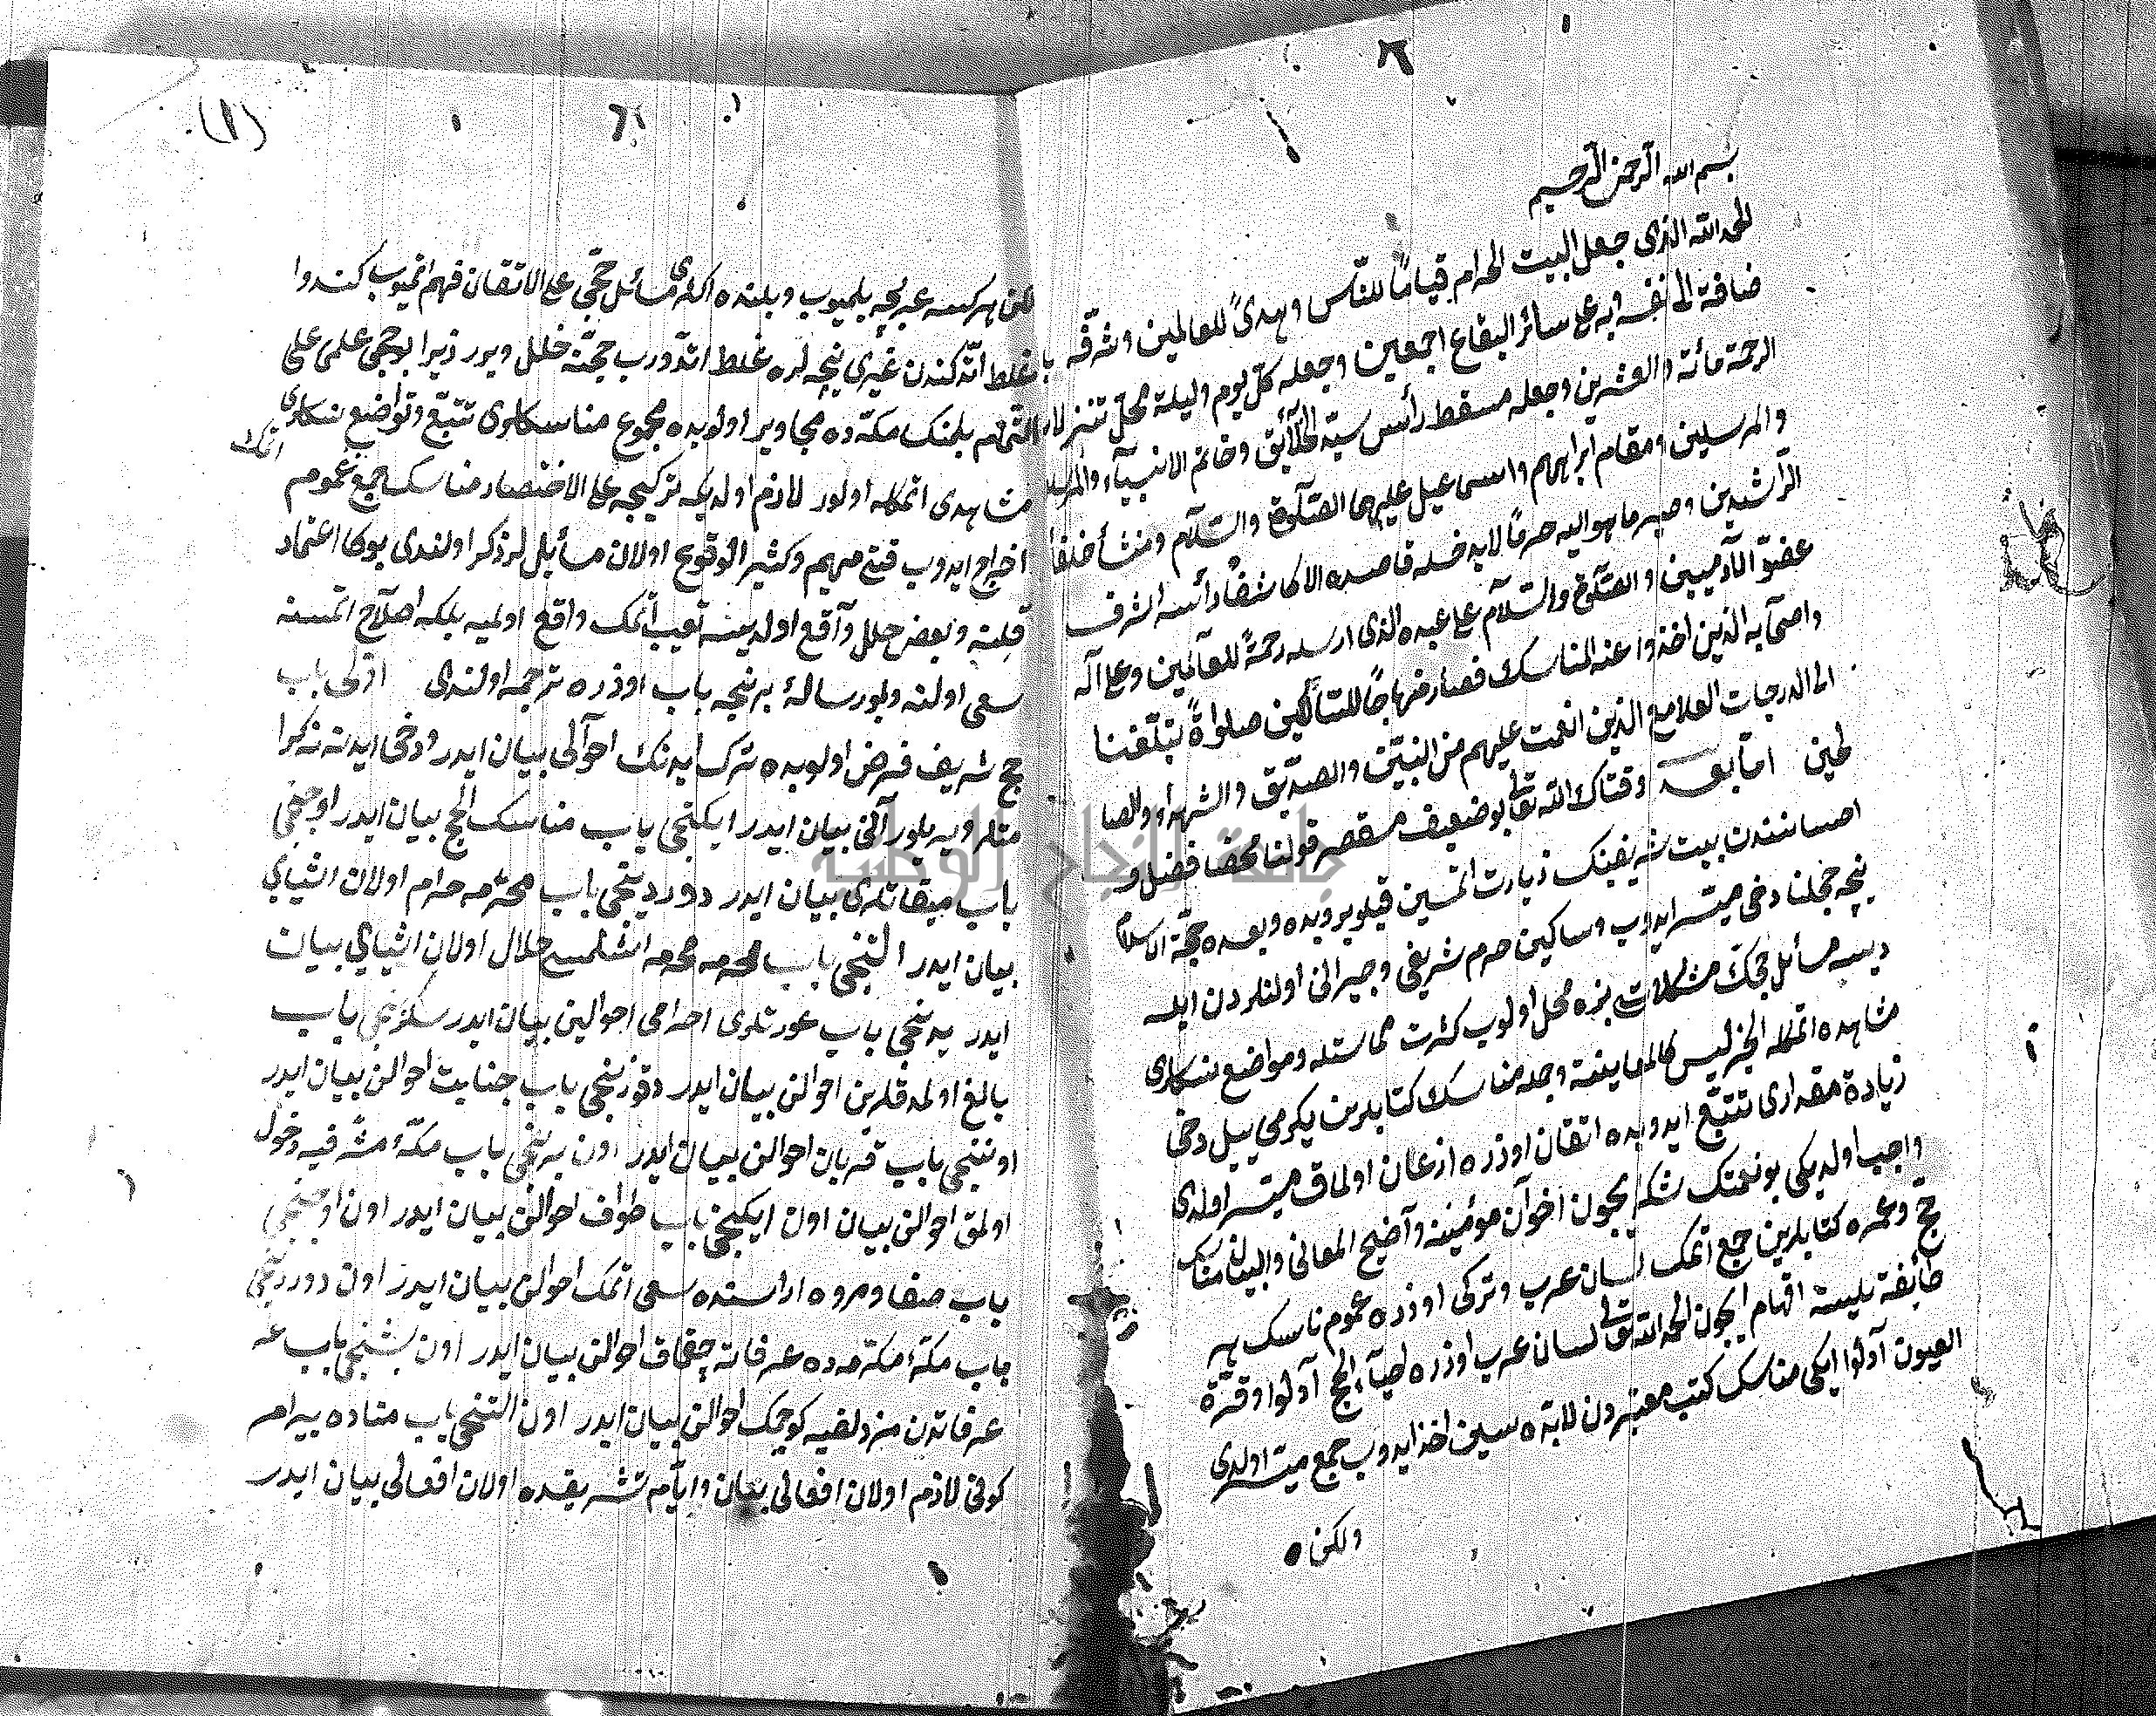 بسم الله الرحمن الرحيم
الحمد لله الذى جعل البيت الحرام قيامًا للنّاس وهدىً للعالمين وشرّفه با
ضافة الى نفسه به على سائر البقاع اجمعين وجعله كل يوم وليلة محلّ تنزلات
الرحمة مائة والعشرين وجعله مسقط رأس سيّد الخلآئق وخاتم الانبيآء والمرسلين
والمرسلين ومقام ابراهيم واسمعيل عليهما الصّلوة والسّلام ومنشأ خلفا
الرّاشدين وصير ما حواليه حرمًا لا يدخله قاصده الا كاشفًا رأسه لشرف
عفوّ الآدميين والصّلوة والسّلام على عبده الذى ارسله رحمةً للعآلمين وعلى آله
واصحآبه الذين اخذوا عنه المناسك فصار منهاجًا للسّالكين صلواةً تبلّغنا
الى الدرجات العلا مع الذين انعمت عليهم من النبيّين والصدّيق والشهدآء والصا
لحين امّا بعد وقتاك الله تعالى بو ضعيف مقصر قولنا محضا فضل و
احساننندن بيت شريفينك زيارت اتمسين قيلويرويده وبعده حجّة الاسلام
نيچه حجلنا دخى ميسّر ايدوب وساكين حرم شريفى وجيرانى اولنلردن ايله
ديسه مسائل حجك مشكلات بزه محل اولوب كثرت مماسّله ومواضع نسكلرى
مشاهده اتمكله الخبر ليس كالمعاينة وجمله مناسك كتابلرين يكرمى ييل دخى
زيادة مقدارى تتبّع ايدوبده اتقان اوزره اذعان اولماق ميسّر اولدى
واجب اولديكى بو نعمتك شكر يچون اخوآن مؤمنينه وآضيح المعانى والبيان مناسك
حجّ وعمره كتابلرين جمع اتمك لسان عرب وتركى اوزره عموم ناسك هر
طآئفة بلسنه افهام ايچون الحمد لله تعالى لسان عرب اوزره لحيآء الحج آدلوا وقرّة
العيون آدلوا ايكى مناسك كتب معتبردن لابده سين اخذ ايدوب جمع ميسّر اولدى
ولكن
(١)
لكن هر كسه عربچه بلميوب وبلنده اكثرى مسائل حجّى على الاتقان فهم اتميوب كندوا
غلط اتّدكندن غيرى نيچه لره غلط اتّدورب حجنه خلل ويرر زيرا بو حجى علمى على
التمام بلمنك مكّه ده مجاوير اولوبده مجموع مناسكلرى تتبّع وتواضيع نسكلرى
انك
مشاهدى اتمكله اولور لازم اولديكه تركيجه على الاختصار مناسك جميع عموم
اخراج ايدوب قتى مهيم وكثير الوقوع اولان مسأيللر ذكر اولندى بوكا اعتماد
قلنه وبعض خلل وآقع اولديسه تعيب اتمك واقع اولميه بلكه اصلآح اتمسنه
سعى اولنه وبو رسالۀ برنيچه باب اوزره ترجمه اولندى اوّلى باب
حج شريف فرض اولوبده ترك ايدنك احوآلى بيان ايدر ودخى ايدنه نه كرا
متلر ويريلور آنى بيان ايدر ايكنجى باب مناسك الحج بيان ايدر اوچنجى
باب ميقاتلرى بيان ايدر دوردينجى باب محرمه حرام اولان اشياى
بيان ايدر التنجى باب محرمه محرمه اشلمسى حلال اولان اشياى بيان
ايدر يدنجى باب عورتلرى احرامى احوالين بيان ايدر سكزنجى باب
بالغ اولمدقلرين احوالن بيان ايدر دقوزنجى باب جنايت احوالن بيان ايدر
اوننجى باب قربان احوالن بيان ايدر اون برنجى باب مكّۀ مشرفيه دخول
اولمق احوالن بيان اون ايكنجى باب طواف احوالن بيان ايدر اون اوچنجى
باب صفا ومروه اراسنده سعى اتمك احوالن بيان ايدر اون دوردنجى
باب مكّۀ مكرمه ده عرفاته چقماق احوالن بيان ايدر اون بشنجى باب عر
عرفاتدن مزدلفيه كوچمك احوالن بيان ايدر اون التنجى باب مناده بيرام
كونى لازم اولان افعالى بيان وايّام تشريقده اولان افعالى بيان ايدر